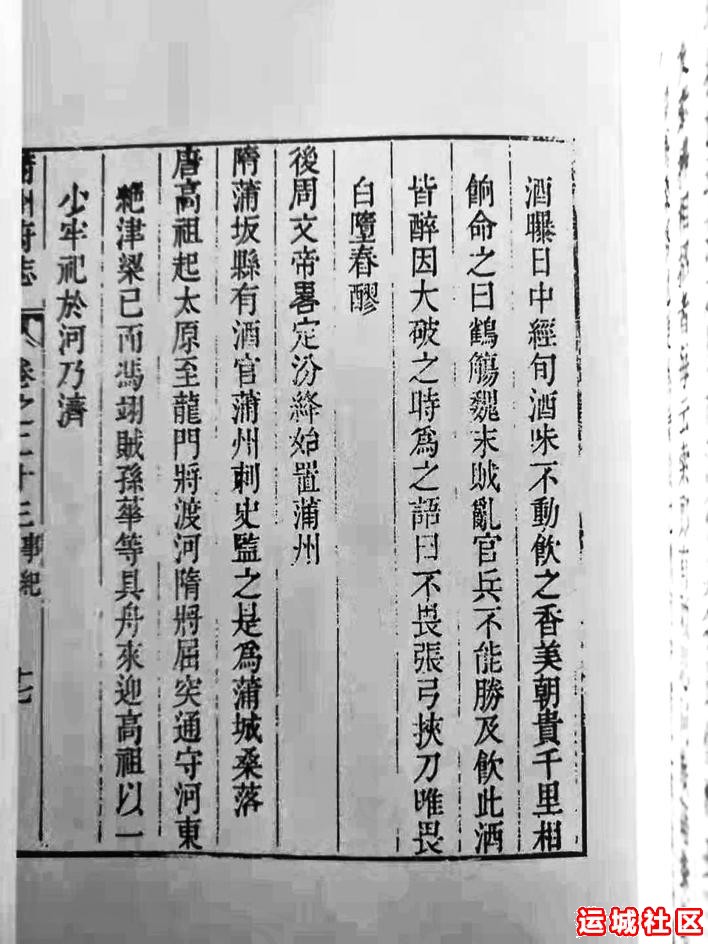 酒曝日中經旬酒味不動飲之香美朝貴千里相
餉命之曰鶴觴魏末賊亂官兵不能勝及飲此酒
皆醉因大破之時爲之語曰不畏張弓挾刀唯畏
白墮春醪
後周文帝畧定汾絳始置蒲州
隋蒲坂縣有酒官蒲州刺史監之是爲蒲城桑落
唐高祖起太原至龍門將渡河隋將屈突通守河東
絶津梁已而馮翊賊孫華等具舟來迎高祖以一
少牢祀於河乃濟
蒲州府志 卷之二十三 事紀 十七
运城社区